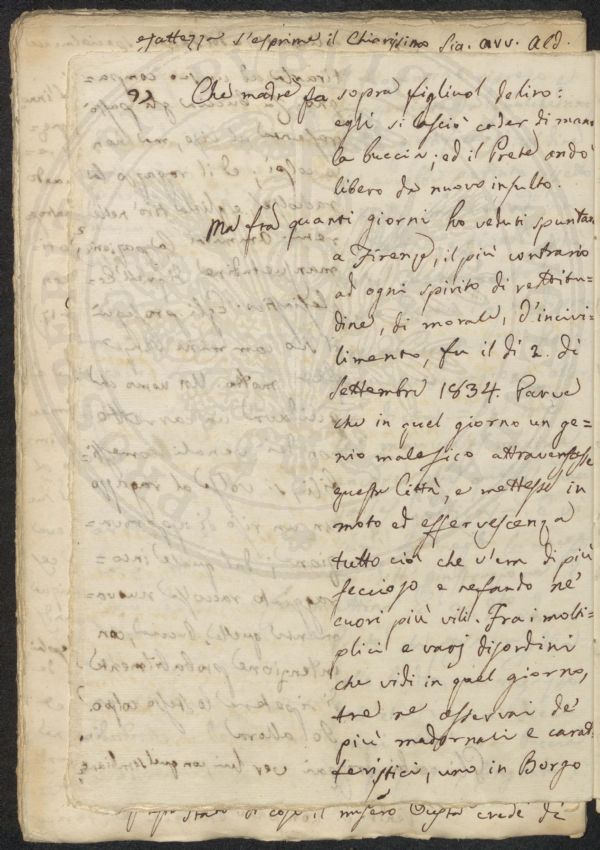 esattezza s'esprime il Chiarissimo Sig. avv. Ald.
Che madre fa sopra figliuol deliro:
egli si lasciò cader di mano
la buccia; ed il Prete andò
libero da nuovo insulto.
Ma frà quanti giorni ho veduti spuntar
a Firenze, il più contrario
ad ogni spirito di rettitu=
dine, di morale, d'incivi=
limento, fu il dì 2. di
Settembre 1834. Parve
che in quel giorno un ge=
nio malefico attraversasse
questa Città, e mettesse in
moto ed effervescenza
tutto ciò che v'era di più
feccioso e nefando nè
cuori più vili. Fra i molti=
plici e varj disordini
che vidi in quel giorno,
trè ne osservai dè
più madornali e carat=
teristici, uno in Borgo
di cose, il misero crede di